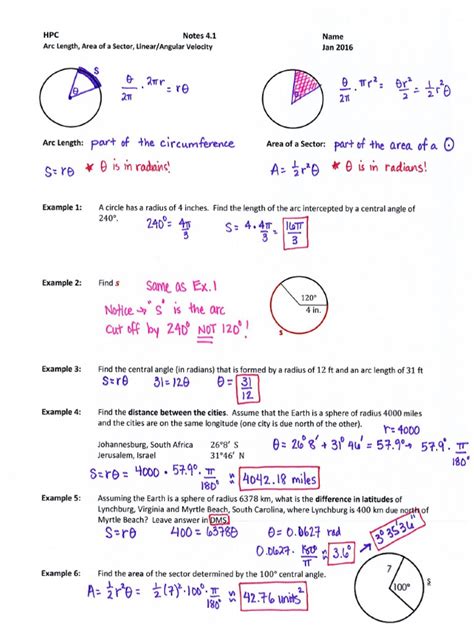 HPC Notes 4.1 Name
Arc Length, Area of a Sector, Linear/Angular Velocity Jan 2016
S
θ
θ/2π · 2πr = rθ
θ/2π · πr² = θr²/2 = 1/2 r²θ
Arc Length: part of the circumference Area of a Sector: part of the area of a ⊙
S=rθ * θ is in radians! A=1/2 r²θ * θ is in radians!
Example 1: A circle has a radius of 4 inches. Find the length of the arc intercepted by a central angle of
240°. 240°=4π/3 S=4·4π/3 = 16π/3
Example 2: Find s Same as Ex.1
Notice → "s" is the arc
cut off by 240° NOT 120°!
120°
4 in.
s
Example 3: Find the central angle (in radians) that is formed by a radius of 12 ft and an arc length of 31 ft
S=rθ 31=12θ θ=31/12
Example 4: Find the distance between the cities. Assume that the Earth is a sphere of radius 4000 miles
and the cities are on the same longitude (one city is due north of the other). r=4000
Johannesburg, South Africa 26°8' S θ=26°8'+31°46'=57.9°→57.9°·π/180°
Jerusalem, Israel 31°46' N
S=rθ=4000·57.9°·π/180° ≈ 4042.18 miles
Example 5: Assuming the Earth is a sphere of radius 6378 km, what is the difference in latitudes of
Lynchburg, Virginia and Myrtle Beach, South Carolina, where Lynchburg is 400 km due north of
Myrtle Beach? Leave answer in DMS.
S=rθ 400=6378θ θ=0.0627 rad
0.0627·180°/π ≈ 3.6° 3°35'36"
Example 6: Find the area of the sector determined by the 100° central angle.
A=1/2 r²θ = 1/2(7)²·100°·π/180° ≈ 42.76 units²
7
100°
s